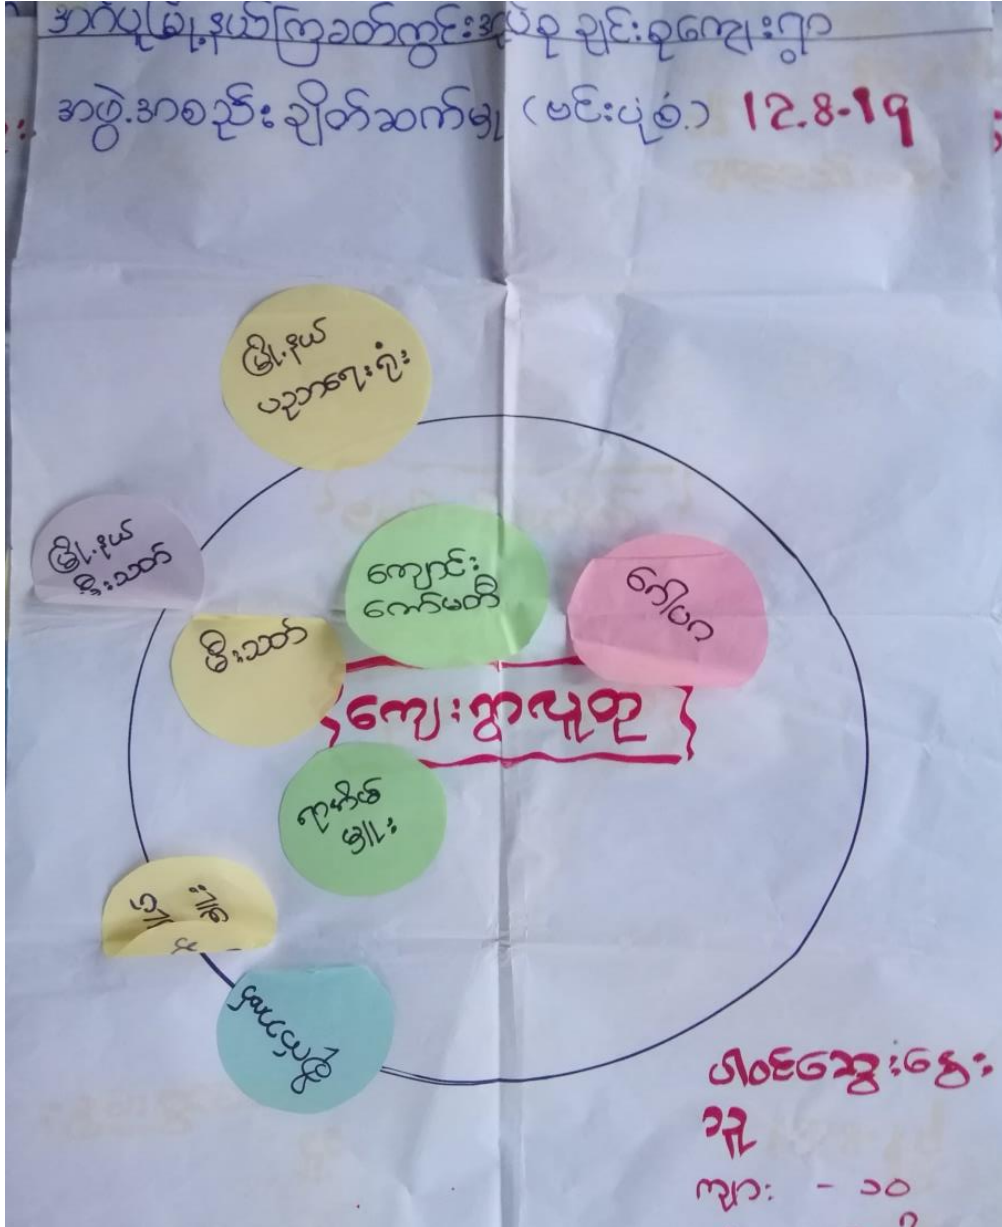 အင်္ဂပူမြို့နယ်ကြခတ်ကွင်းအုပ်စု ချင်းစုကျေးရွာ
အဖွဲ့အစည်းချိတ်ဆက်မှု (ဗင်းပုံစံ) 12.8-19
မြို့နယ်
ပညာရေးရုံး
မြို့နယ်
မီးသတ်
ကျောင်း
ကော်မတီ
ဂေါပက
မီးသတ်
{ကျေးရွာလူထု}
ရာအိမ်
မှူး
မှူး
ပါဝင်ဆွေးနွေး
သူ
ကျား - ၁၀